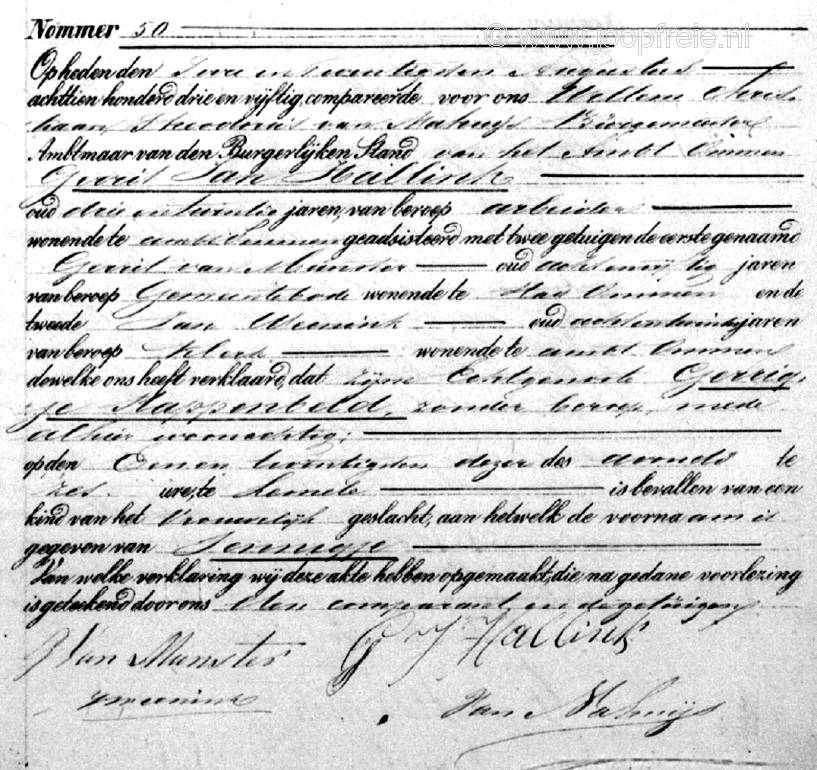 © www.joopfreie.nl
Nommer 50
Op heden den Twee en Twintigsten Augustus
achttien honderd drie en vijftig, compareerde voor ons Willem Chris
tiaan Theodorus van Nahuijs Burgemeester
Ambtnaar van den Burgerlijken Stand van het Ambt Ommen
Gerrit Jan Hallink
oud drie en twintig jaren, van beroep arbeider
wonende te ambt Ommen geadsisteerd met twee getuigen de eerste genaamd
Gerrit van Munster oud acht en vijftig jaren
van beroep Gemeentebode wonende te Stad Ommen en de
tweede Jan oud acht en twintig jaren
van beroep Klerk wonende te ambt Ommen
dewelke ons heeft verklaard, dat zijne Echtgenoote Gerrig
je Kappenbeld, zonder beroep, mede
alhier woonachtig;
op den Een en twintigsten dezer des avonds te
zes ure, te Lemele is bevallen van een
kind van het Vrouwelijk geslacht, aan hetwelk de voornaam is
gegeven van Jennigje
Van welke verklaring wij deze akte hebben opgemaakt, die, na gedane voorlezing
is geteekend door ons den comparant en de getuigen
G Van Munster G J Hallink
van Nahuijs